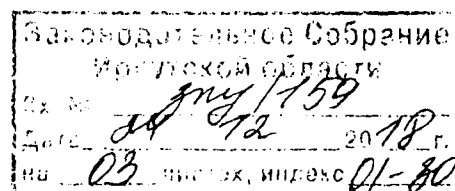 Законодательное Собрание
Иркутской области
Вх. №
Дата 12 2018 г.
на 03 листах, индекс 01-30